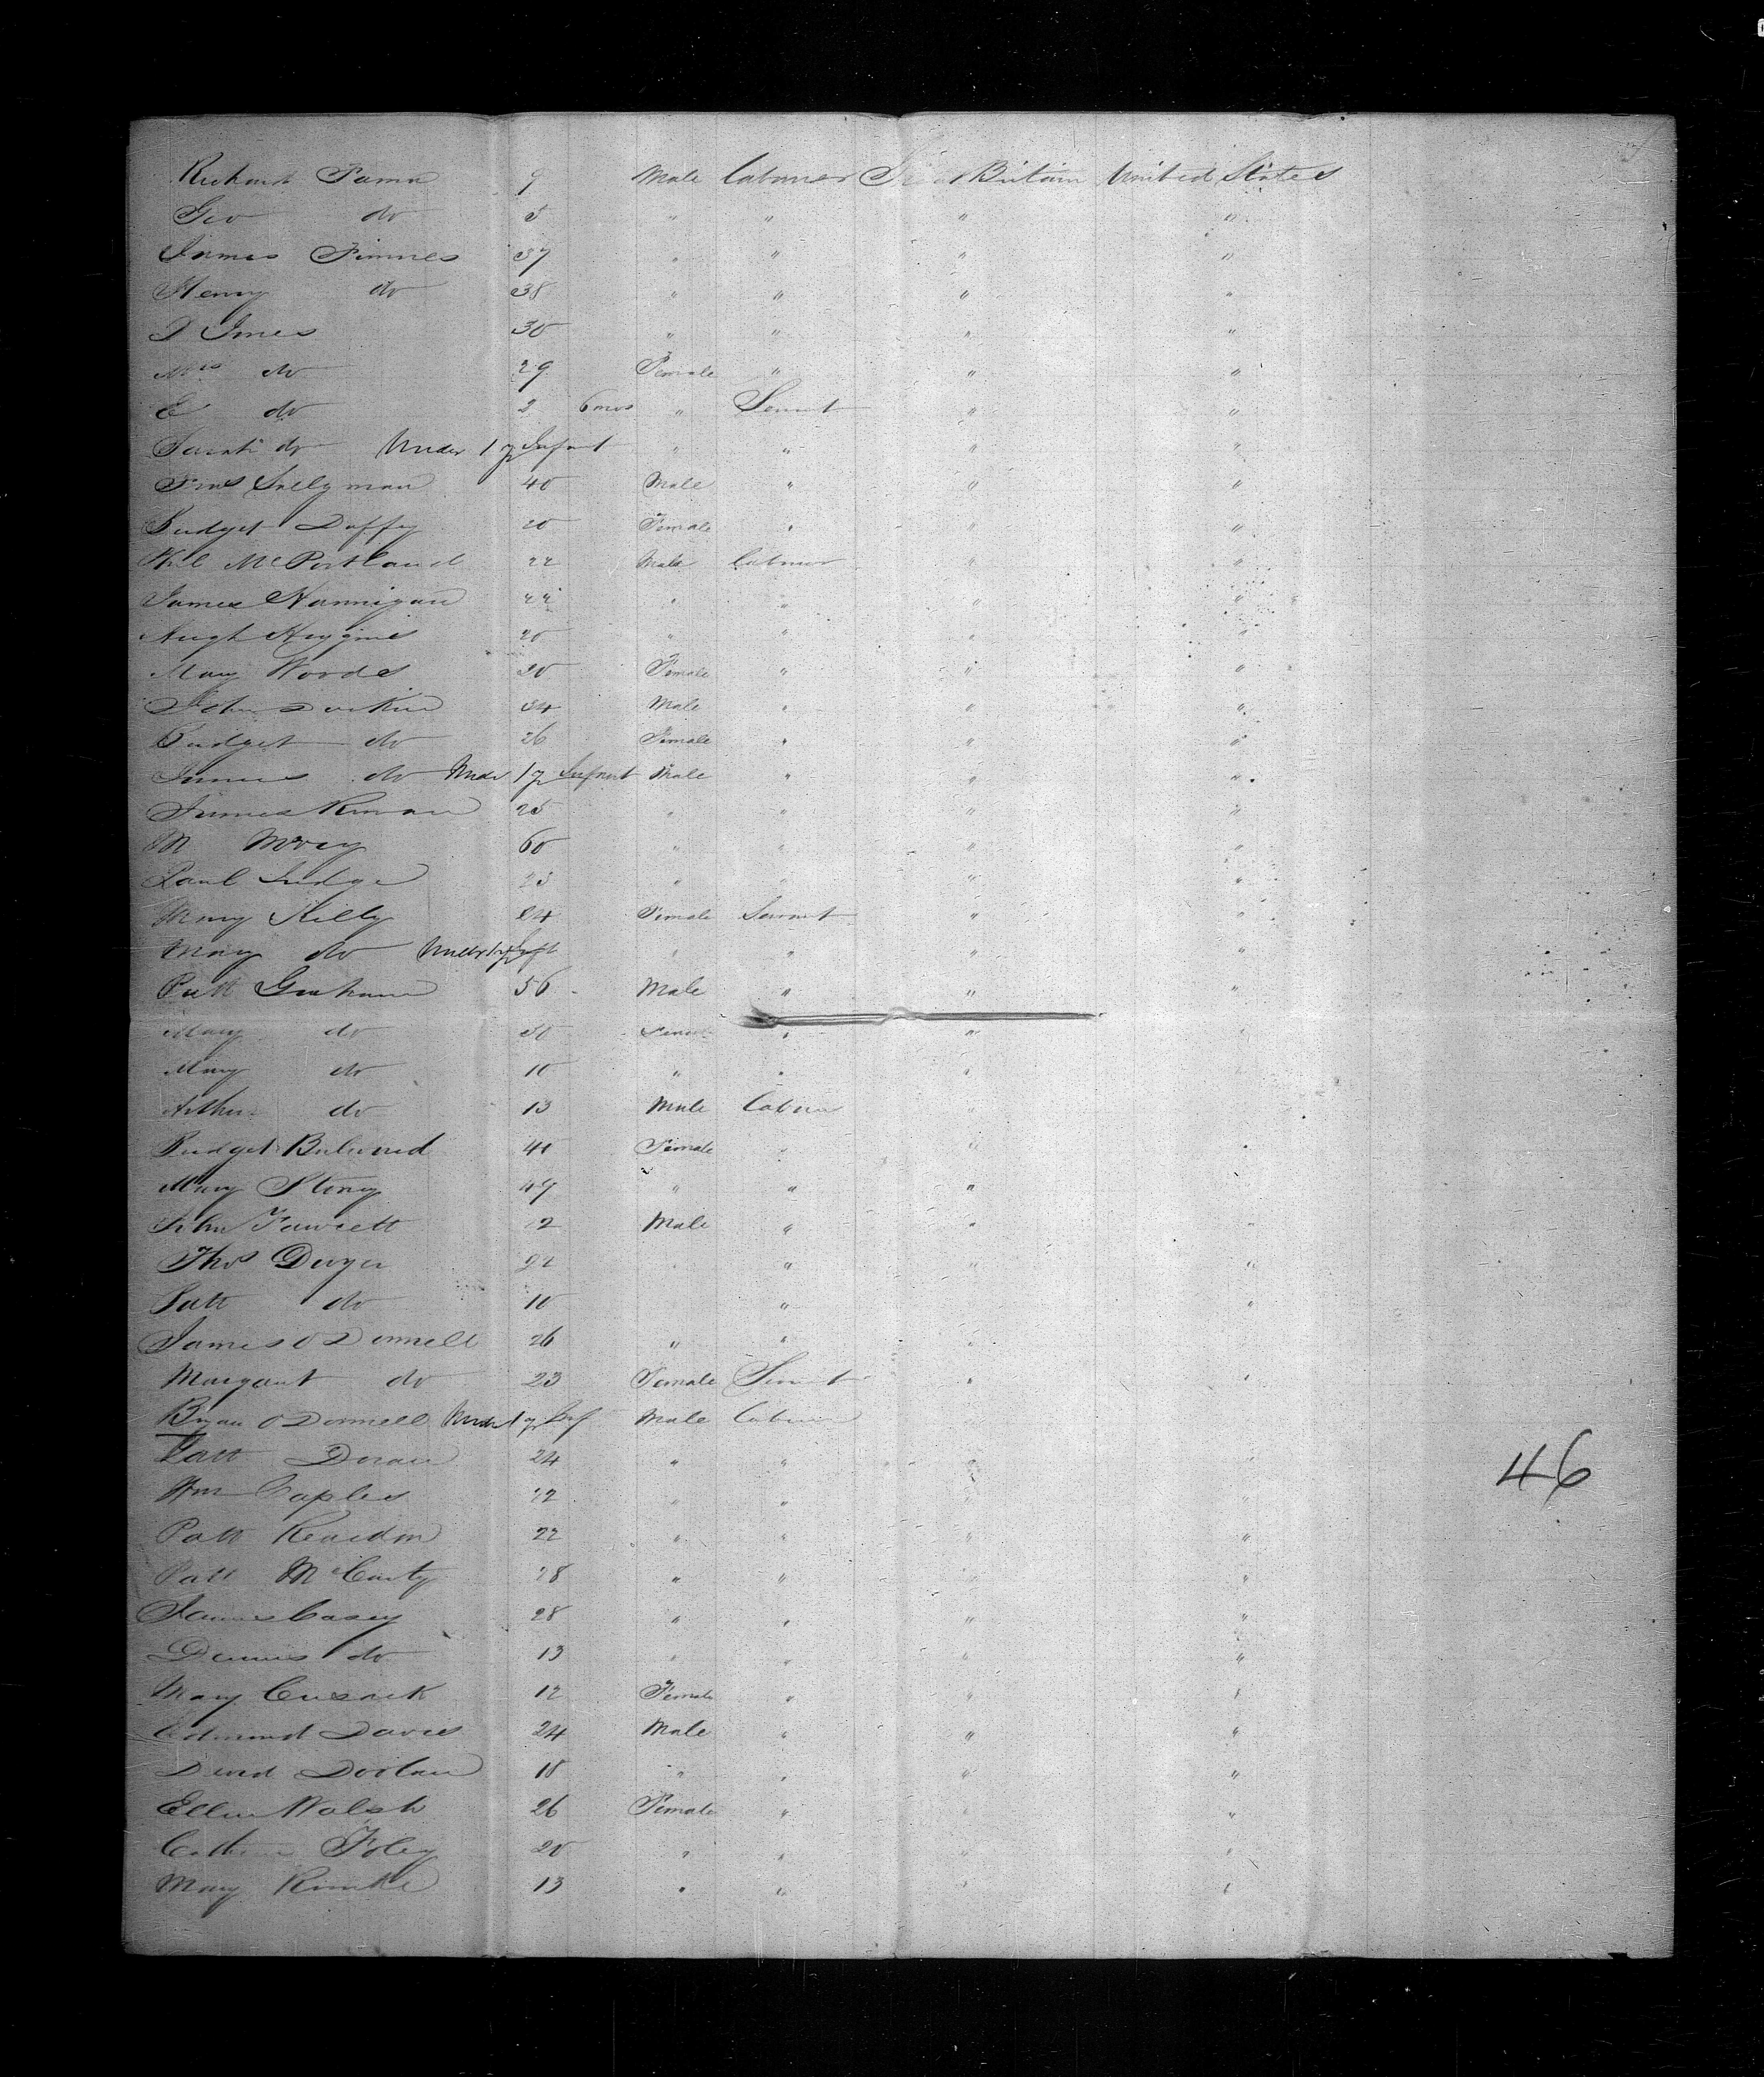 Richard 9 Male Labourer Britain United States
Geo do 5 " " " "
James 37 " " " "
Henry do 38 " " " "
D 30 " " " "
Mrs do 29 Female " " "
E do 2 6 mos " Servant " "
Sarah do Under 1 yr Infant " " " "
40 Male " " "
Bridget Duffy 20 Female " " "
McPortland 22 Male Labourer " "
James Hannigan 22 " " " "
Hugh 20 " " " "
Mary Woods 20 Female " " "
John Durkin 34 Male " " "
Bridget do 26 Female " " "
James do Under 1 yr Infant Male " " "
James 25 " " " "
M 60 " " " "
Paul Judge 25 " " " "
Mary Kelly 24 Female Servant " "
Mary do Under 1 yr Inft " " " "
Patt Graham 56 Male " " "
Mary do 50 Female " "
Mary do 10 " " "
Arthur do 13 Male Labour "
Bridget 40 Female " " "
Mary 47 " " "
John Fawcett 12 Male " " "
Thos Dwyer 22 " " "
Patt do 10 " "
James O Donnell 26 " " "
Margaret do 23 Female Servant " "
Bryan O Donnell Under 1 yr Inf Male Labour
Patt Doran 24 " " " "
Wm 22 " " " "
Patt Reardon 22 " " " "
Patt McCarty 28 " " " "
James Casey 28 " " " "
Dennis do 13 " " " "
Mary Cusack 12 Female " " "
Edmund Davies 24 Male " " "
David Doolan 18 " " " "
Ellen Walsh 26 Female " " "
Foley 20 " " " "
Mary 13 " " " "
46